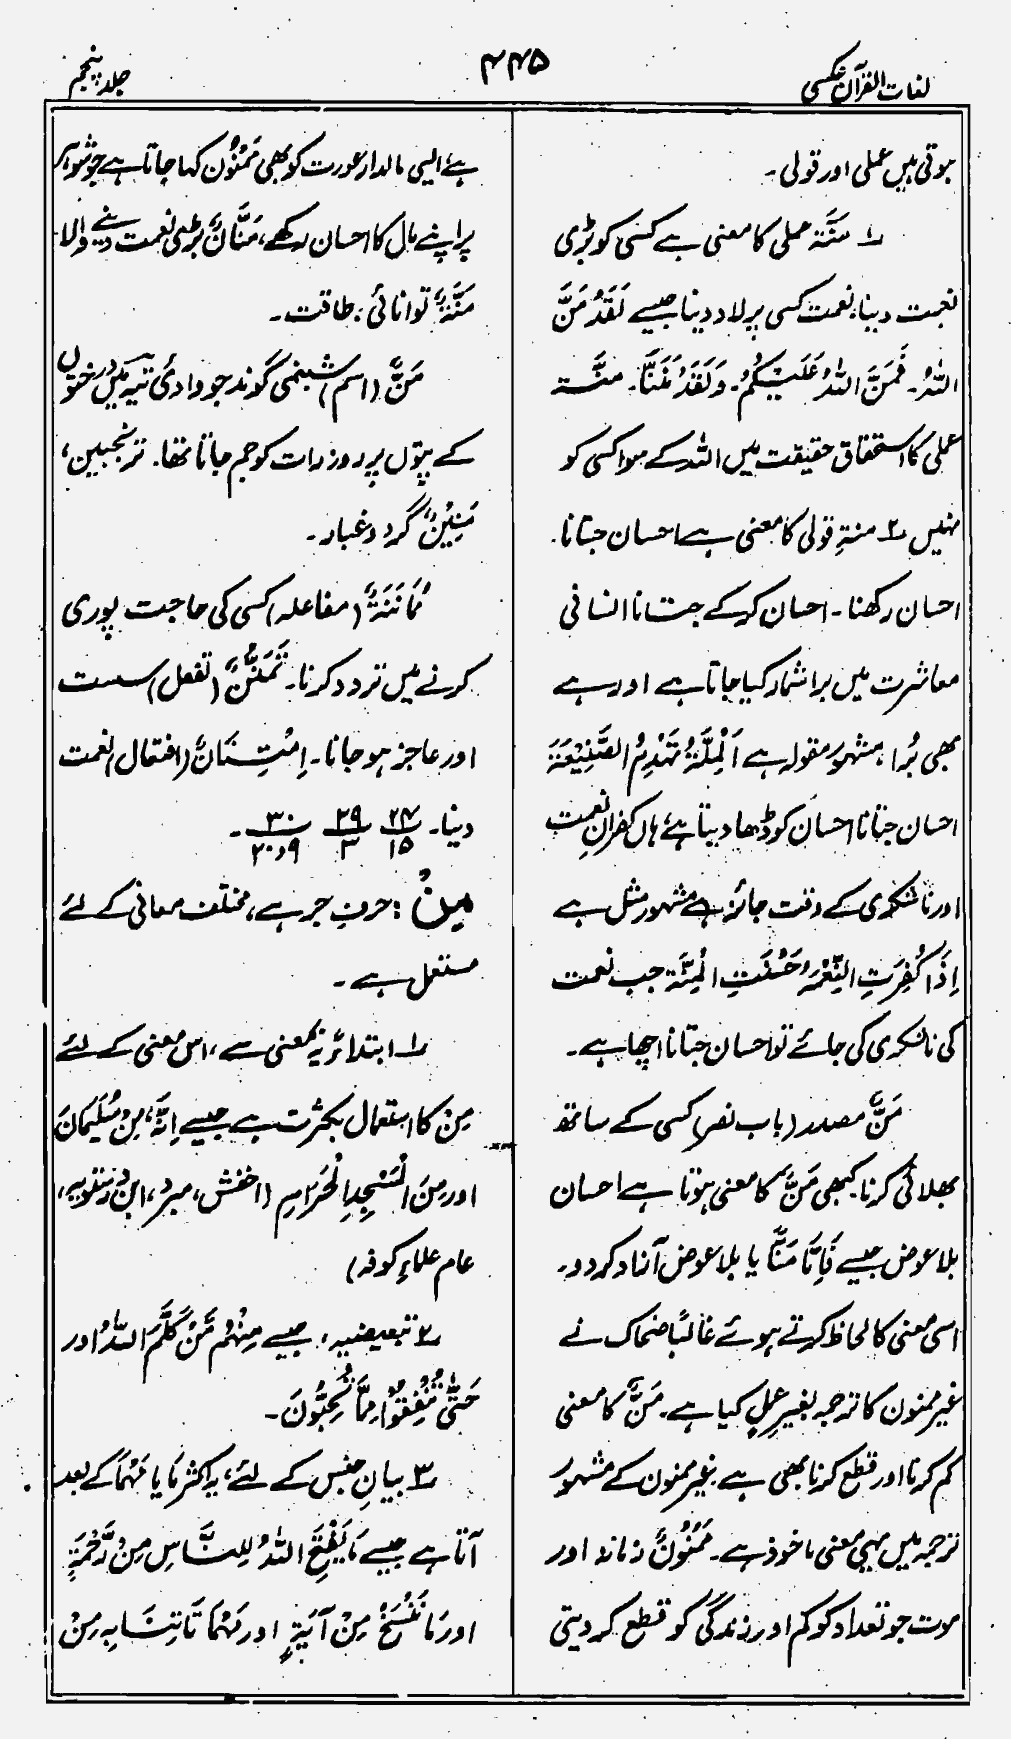 لغات القرآن عکسی
۴۴۵
جلد پنجم
ہوتی ہیں عملی اور قولی۔
۱؎ مِنَّۃ عملی کا معنی ہے کسی کو بڑی
نعمت دینا، نعمت کسی پر لاد دینا جیسے لَقَدْ مَنَّ
اللّٰہُ۔ فَمَنَّ اللّٰہُ عَلَیْکُمْ۔ وَلَقَدْ مَنَنَّا۔ منّۃ
عملی کا استحقاق حقیقت میں اللہ کے سوا کسی کو
نہیں ۲؎ منۃِ قولی کا معنی ہے احسان جتانا۔
احسان رکھنا۔ احسان کر کے جتانا انسانی
معاشرت میں برا شمار کیا جاتا ہے اور ہے
بھی بُرا، مشہور مقولہ ہے اَلْمِنَّۃُ تَھْدِمُ الصَّنِیْعَۃَ
احسان جتانا احسان کو ڈھا دیتا ہے، ہاں کفرانِ نعمت
اور ناشکری کے وقت جائز ہے مشہور مثل ہے
اِذَا کُفِرَتِ النِّعْمَۃُ حَسُنَتِ الْمِنَّۃ جب نعمت
کی ناشکری کی جائے تو احسان جتانا اچھا ہے۔
مَنٌّ مصدر (باب نصر) کسی کے ساتھ
بھلائی کرنا کبھی مَنٌّ کا معنی ہوتا ہے احسان
بلا عوض جیسے فَاِمَّا مَنًّا یا بلا عوض آزاد کر دو۔
اسی معنی کا لحاظ کرتے ہوئے غالبًا ضحاک نے
غیر ممنون کا ترجمہ بغیر عمل کیا ہے۔ مَنٌّ کا معنی
کم کرنا اور قطع کرنا بھی ہے، غیر ممنون کے مشہور
ترجمہ میں یہی معنی ماخوذ ہے۔ مَمْنُوْنٌ زمانہ اور
موت جو تعداد کو کم اور زندگی کو قطع کر دیتی
ہے، ایسی مالدار عورت کو بھی مَمْنُوْن کہا جاتا ہے جو شوہر
پر اپنے مال کا احسان رکھے، مَنَّانٌ بڑی نعمت دینے والا
مُنَّۃٌ توانائی، طاقت۔
مَنٌّ (اسم) شبنمی گوند جو وادی تیہ میں درختوں
کے پتوں پر روز رات کو جم جاتا تھا۔ ترنجبین،
مَنِیْنٌ گرد و غبار۔
مُمَانَنَۃٌ (مفاعلہ) کسی کی حاجت پوری
کرنے میں تردد کرنا۔ تَمَنُّنٌ (تفعل) سست
اور عاجز ہو جانا۔ اِمْتِنَانٌ (افتعال) نعمت
دینا۔ ۲۷/۱۵ ۲۹/۳ ۳۰/۹و۲۰۔
مِنْ: حرفِ جر ہے، مختلف معانی کے لئے
مستعمل ہے۔
۱؎ ابتدائیہ بمعنی سے، اس معنی کے لئے
مِنْ کا استعمال بکثرت ہے جیسے اِنَّہٗ مِنْ سُلَیْمَانَ
اور مِنَ الْمَسْجِدِ الْحَرَامِ (اخفش، مبرد، ابن درستویہ،
عام علماءِ کوفہ)
۲؎ تبعیضیہ، جیسے مِنْھُمْ مَّنْ کَلَّمَ اللّٰہُ اور
حَتّٰی تُنْفِقُوْا مِمَّا تُحِبُّوْنَ۔
۳؎ بیانِ جنس کے لئے، یہ اکثر مَا یا مَھْمَا کے بعد
آتا ہے جیسے مَا یَفْتَحِ اللّٰہُ لِلنَّاسِ مِنْ رَّحْمَۃٍ
اور مَا نَنْسَخْ مِنْ آیَۃٍ اور مَھْمَا تَاتِنَا بِہٖ مِنْ